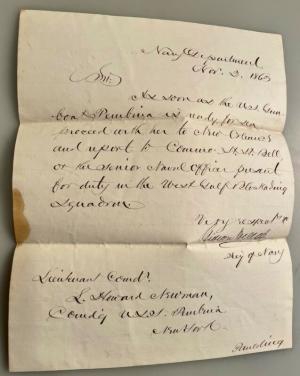 Navy Department
Nov. 2, 1863
Sir:
As soon as the U.S. Gun
boat Pembina is ready for sea
proceed with her to New Orleans
and report to Commo. H. H. Bell
or the Senior Naval Officer present
for duty in the West Gulf Blockading
Squadron.
Very respect
Gideon Welles
Secy of Navy
Lieutenant Comdr.
L. Howard Newman,
Comdg U.S.S. Pembina
New York.